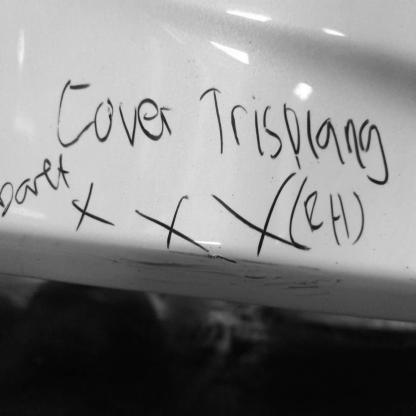 Cover Trisplang
baret x x X (RH)